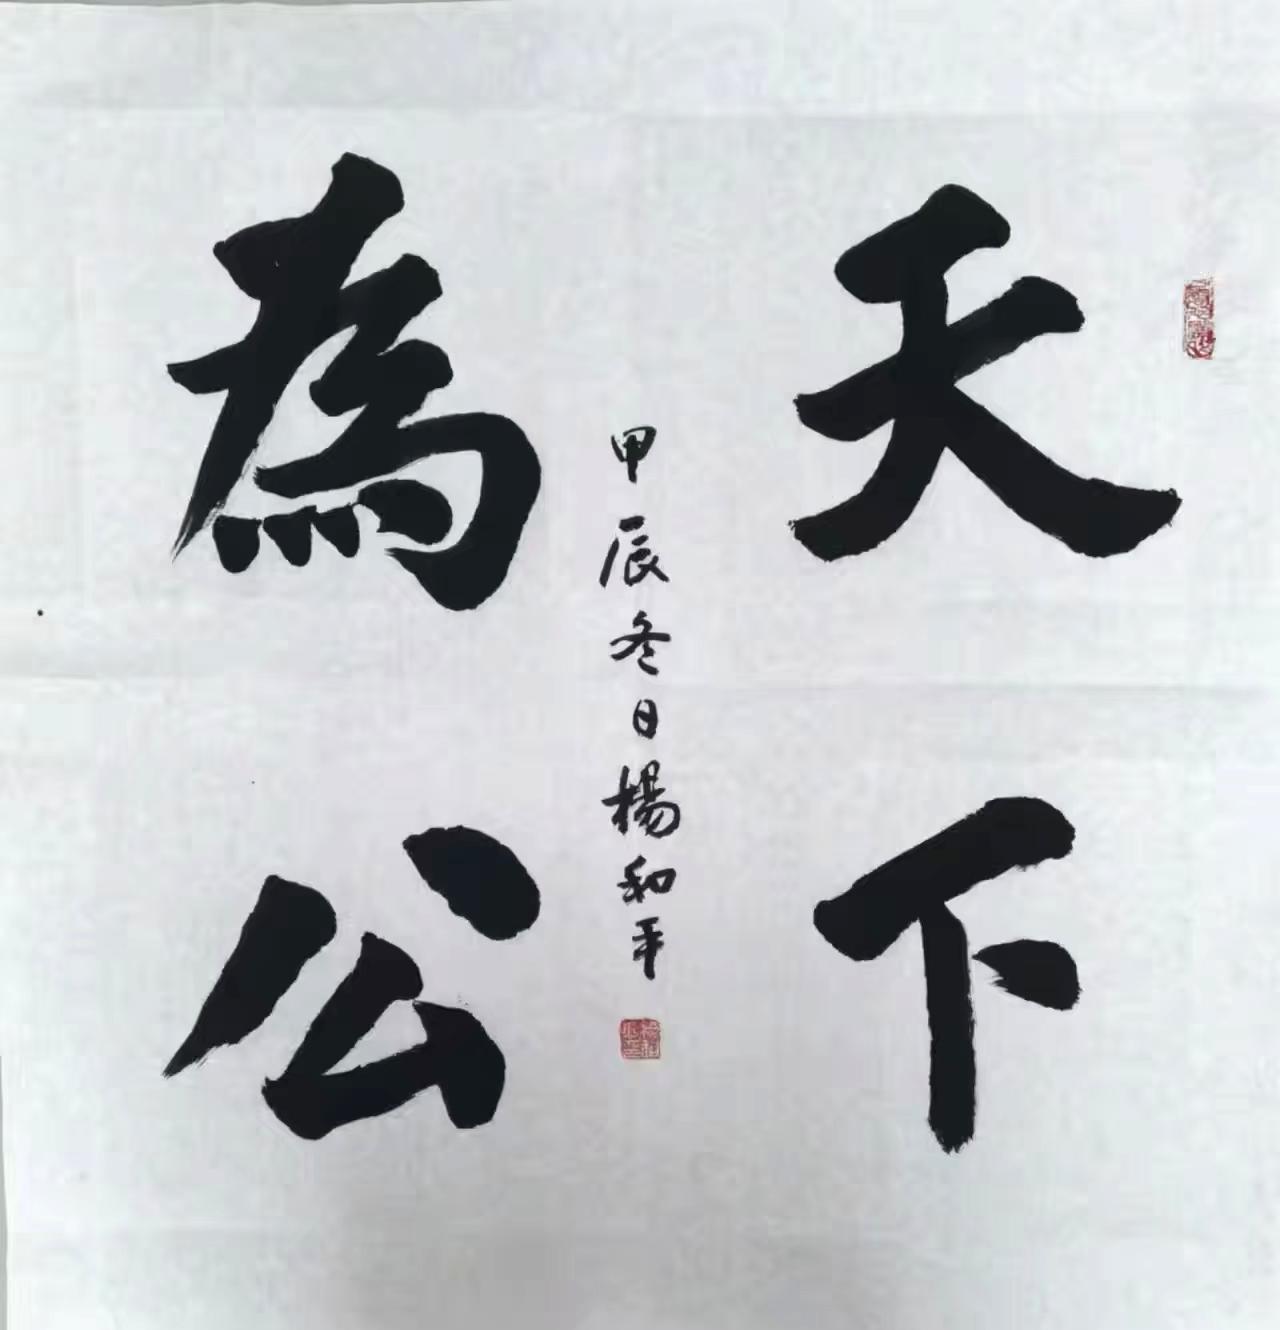 天下
為公
甲辰冬日楊和平